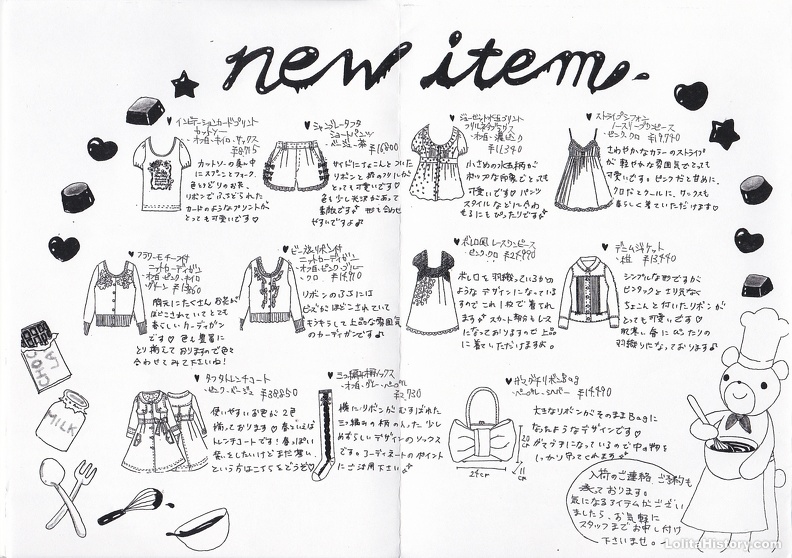 new item.
♥ インビテーションカードプリント
カットソー
¥8,715
カットソーの真ん中
にスプーンとフォーク、
色とりどりのお花、
リボンでふちどられた
カードのようなプリントが
とっても可愛いです♡
♥ シャンブレータフタ
ショートパンツ
¥16,800
サイドにちょこんとついた
リボンと裾のフリルが
とっても可愛いです♡
色も少し光沢があって
素敵です♪ 形も合わせ
やすいですよ♪
フリルネックブラウス
¥11,340
小さめの水玉柄が
ポップな印象でとっても
可愛いです♡ パンツ
スタイルなどに合わ
せるにもぴったりです♪
♥ ストライプシフォン
ノースリーブワンピース
・ピンク、クロ ¥19,740
さわやかなカラーのストライプ
が軽やかな雰囲気でとっても
可愛いです。ピンクだと甘めに、
クロだとクールに、サックスも
春らしく着ていただけます♡
♥ フラワーモチーフ付
ニットカーディガン
・オフ白・ピンク・ネイロ
胸元にたくさんお花が
ほどこされていてとても
春らしいカーディガン
です♡ 色も豊富に
とり揃えておりますので色々
合わせてみて下さいね!
♥ ビーズ&リボン付
ニットカーディガン
・オフ白・ピンク・ブルー
・クロ ¥14,910
リボンのふちには
ビーズがほどこされていて
きらきらして上品な雰囲気
のカーディガンです♪
♥ ボレロ風 レースワンピース
・ピンク、クロ ¥24,990
ボレロを羽織っているかの
ようなデザインになっていま
すのでこれ1枚で着れ
ます♪ スカート部分もレース
になっておりますので上品
に着ていただけますよ。
♥ デニムジャケット
¥13,440
シンプルな形ですが
ピンタックとえり元など
ちょこんと付いたリボンが
とっても可愛いです♡
肌寒い春にぴったりの
羽織りになっております♪
♥ タフタトレンチコート
・ピンク、ベージュ ¥38,850
使いやすいお色が2色
揃っております♡春といえば
トレンチコートです!春っぽい
装いをしたいけどまだ寒い、
という方はこちらをどうぞ♡
¥2,730
横にリボンがむすばれた
三つ編みの柄の入った少し
めずらしいデザインのソックス
です。コーディネートのポイント
にご活用下さい。
Bag
¥14,490
大きなリボンがそのままBagに
なったようなデザインです♡
がま口になっているので中の物を
しっかり守ってくれます♪
20cm
24cm
11cm
CHOCOLA
MILK
入荷のご連絡、ご予約も
承っております。
気になるアイテムがござい
ましたら、お気軽に
スタッフまでお申し付け
下さいませ。
LolitaHistory.com